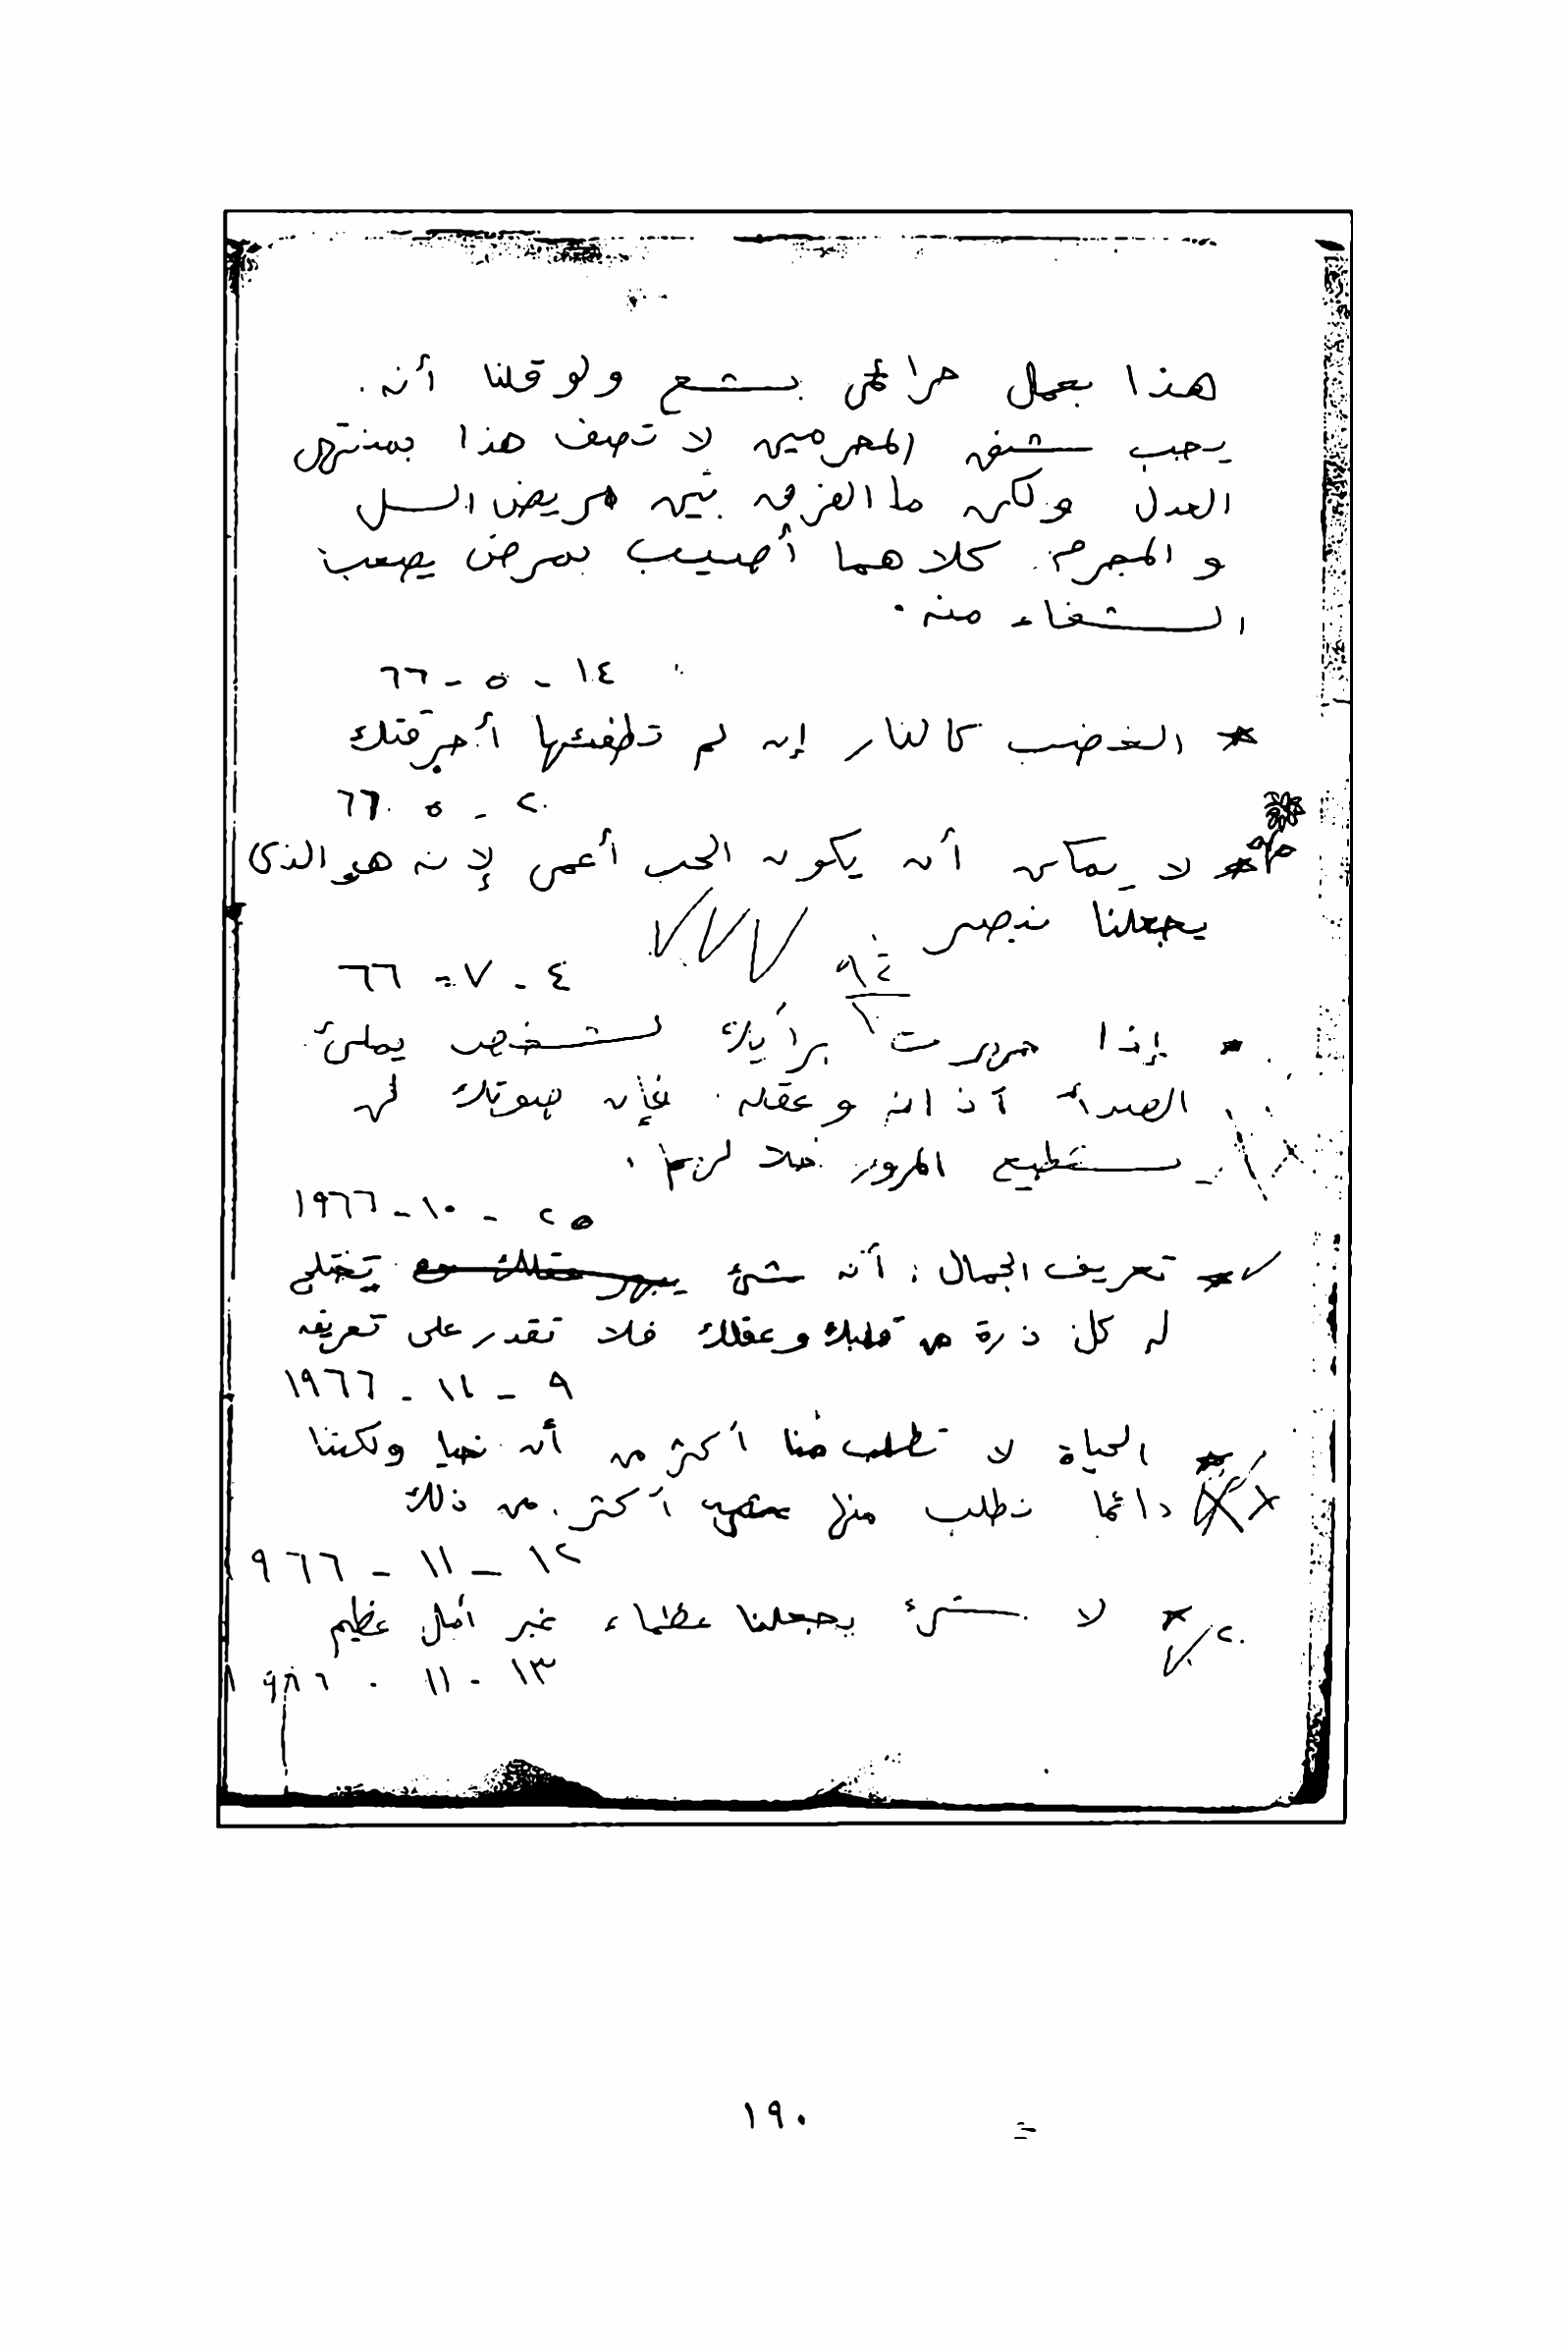 هذا بعمل حرائمى بشع ولو قلنا أنه
يجب شنق المجرمين لا تصف هذا بمنتهى
العدل ولكن ما الفرق بين مريض السل
و المجرم كلاهما أصيب بمرض يصعب
الشفاء منه .
١٤ - ٥ - ٦٦
* الغضب كالنار إن لم تطفئها أحرقتك
٢٠ - ٥ ٦٦
* لا يمكن أن يكون الحب أعمى لإنه هو الذى
يجعلنا نبصر
٤ - ٧ - ٦٦
* إذا مررت برأيك لشخص يملئ
الصدأ آذانه وعقله فإن صوتك لن
يستطيع المرور خلالهم .
٢٥ - ١٠ - ١٩٦٦
* تعريف الجمال : أنه شئ يبهر عقلك يختلى
له كل ذرة من قلبك وعقلك فلا تقدر على تعريفه
٩ - ١١ - ١٩٦٦
* الحياة لا تطلب منا أكثر من أن نحيا ولكننا
دائما نطلب منها أكثر من ذلك
١٢ - ١١ - ٩٦٦
* لا شئ يجعلنا عظماء غير أمل عظيم
١٣ - ١١ - ١٩٦٦
١٩٠